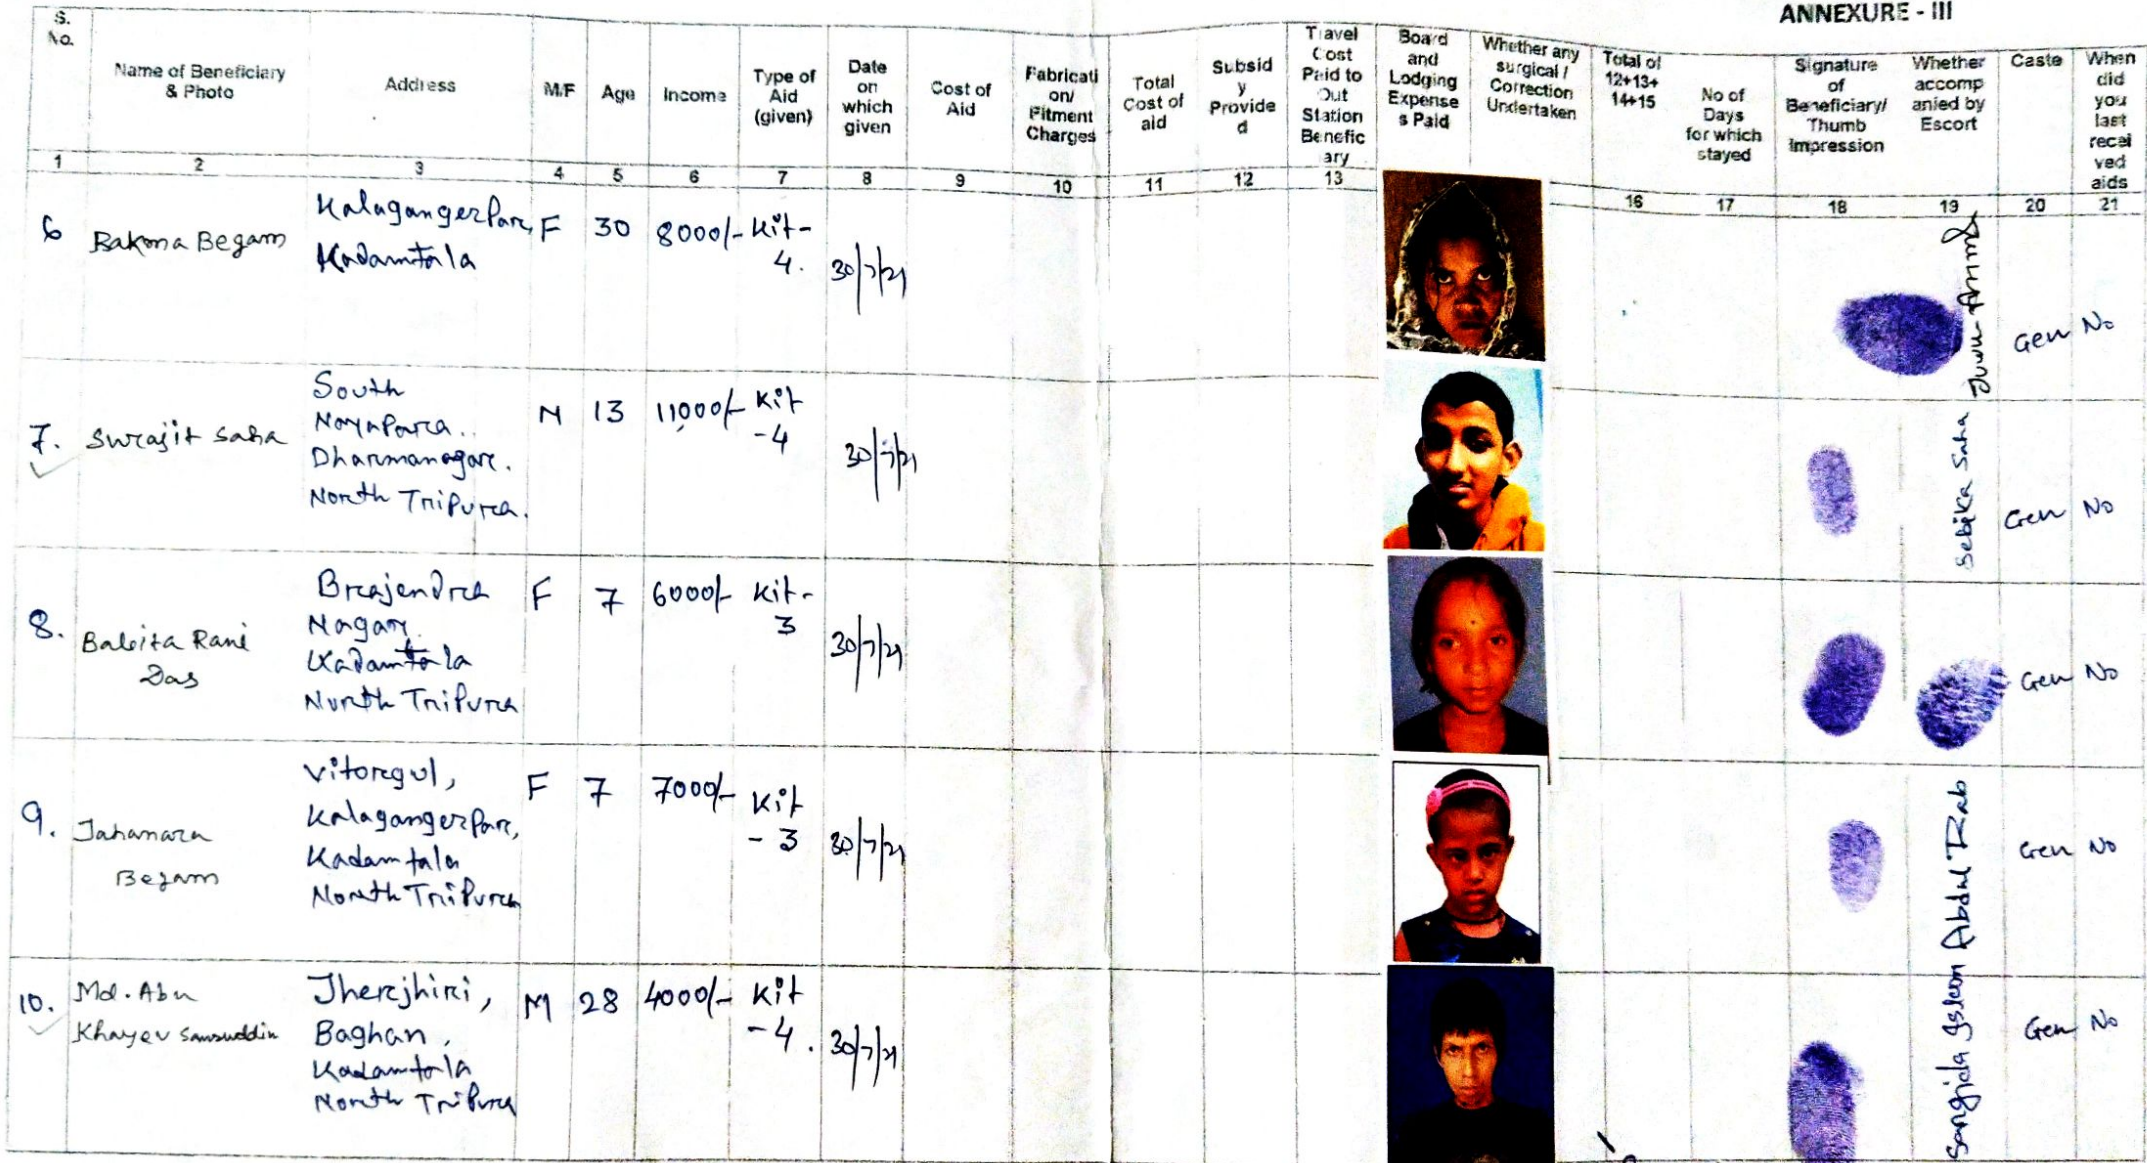 ANNEXURE - III
S. No.
Name of Beneficiary & Photo
Address
M/F
Age
Income
Type of Aid (given)
Date on which given
Cost of Aid
Fabricati on/ Fitment Charges
Total Cost of aid
Subsid y Provide d
Travel Cost Paid to Out Station Benefic ary
Board and Lodging Expense s Paid
Whether any surgical / Correction Undertaken
Total of 12+13+ 14+15
No of Days for which stayed
Signature of Beneficiary/ Thumb Impression
Whether accomp anied by Escort
Caste
When did you last recei ved aids
1 2 3 4 5 6 7 8 9 10 11 12 13 16 17 18 19 20 21
6 Bakma Begam
Kalagangerpar,
Kadamtala
F 30 8000/- Kit-
4.
30/7/21
Gen No
7. Surajit Saha
South
Nayapara.
Dharmanagar.
North Tripura.
M 13 11,000/- Kit
-4
30/7/21
Sebika Saha
Gen No
8. Babita Rani
Das
Brajendra
Nagar
Kadamtala
North Tripura
F 7 6000/- Kit-
3
30/7/21
Gen No
9. Jahanara
Begam
Vitorgul,
Kalagangerpar,
Kadamtala
North Tripura
F 7 7000/- Kit
- 3
30/7/21
Abdul Rab
Gen No
10. Md. Abu
Khayer Samsuddin
Jherjhiri,
Baghan,
Kadamtala
North Tripura
M 28 4000/- Kit
-4.
30/7/21
Sangida Islam
Gen No